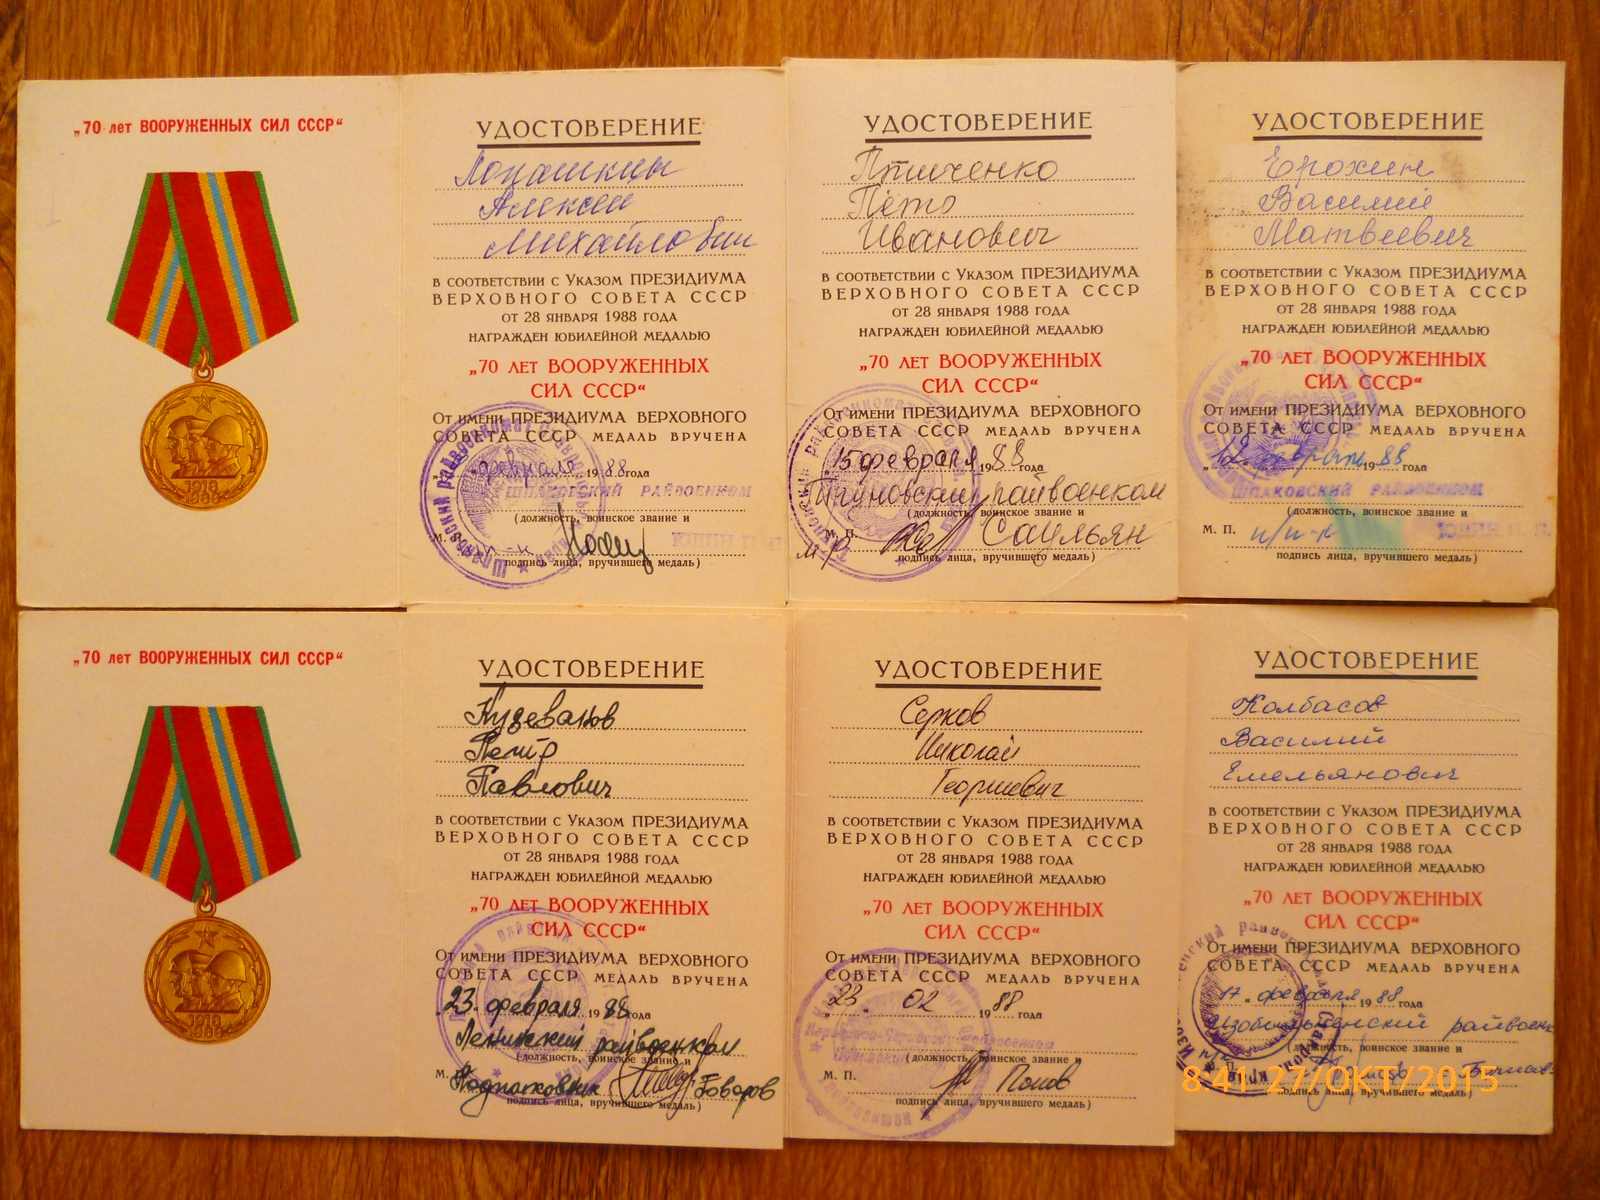 „70 лет ВООРУЖЕННЫХ СИЛ СССР“
1918
1988
УДОСТОВЕРЕНИЕ
Алексей
Михайлович
в соответствии с Указом ПРЕЗИДИУМА
ВЕРХОВНОГО СОВЕТА СССР
от 28 января 1988 года
награжден юбилейной медалью
„70 лет ВООРУЖЕННЫХ
СИЛ СССР“
От имени ПРЕЗИДИУМА ВЕРХОВНОГО
СОВЕТА СССР медаль вручена
февраля 1988 года
ШПАКОВСКИЙ РАЙВОЕНКОМ
(должность, воинское звание и
М. П. п/п-к ЮДИН
подпись лица, вручившего медаль)
УДОСТОВЕРЕНИЕ
Птиченко
Петр
Иванович
в соответствии с Указом ПРЕЗИДИУМА
ВЕРХОВНОГО СОВЕТА СССР
от 28 января 1988 года
награжден юбилейной медалью
„70 лет ВООРУЖЕННЫХ
СИЛ СССР“
От имени ПРЕЗИДИУМА ВЕРХОВНОГО
СОВЕТА СССР медаль вручена
„15 февраля 1988 года
райвоенком
(должность, воинское звание и
М. П. м-р Саульян
подпись лица, вручившего медаль)
УДОСТОВЕРЕНИЕ
Ерохин
Василий
Матвеевич
в соответствии с Указом ПРЕЗИДИУМА
ВЕРХОВНОГО СОВЕТА СССР
от 28 января 1988 года
награжден юбилейной медалью
„70 лет ВООРУЖЕННЫХ
СИЛ СССР“
От имени ПРЕЗИДИУМА ВЕРХОВНОГО
СОВЕТА СССР медаль вручена
„12„ февраля 1988 года
ШПАКОВСКИЙ РАЙВОЕНКОМ
(должность, воинское звание и
М. П. п/п-к ЮДИН
подпись лица, вручившего медаль)
„70 лет ВООРУЖЕННЫХ СИЛ СССР“
1918
1988
УДОСТОВЕРЕНИЕ
Кузеванов
Петр
Павлович
в соответствии с Указом ПРЕЗИДИУМА
ВЕРХОВНОГО СОВЕТА СССР
от 28 января 1988 года
награжден юбилейной медалью
„70 лет ВООРУЖЕННЫХ
СИЛ СССР“
От имени ПРЕЗИДИУМА ВЕРХОВНОГО
СОВЕТА СССР медаль вручена
„23„ февраля 1988 года
Ленинский райвоенком
(должность, воинское звание и
М. П. Подполковник Говоров
подпись лица, вручившего медаль)
УДОСТОВЕРЕНИЕ
Серков
Николай
Георгиевич
в соответствии с Указом ПРЕЗИДИУМА
ВЕРХОВНОГО СОВЕТА СССР
от 28 января 1988 года
награжден юбилейной медалью
„70 лет ВООРУЖЕННЫХ
СИЛ СССР“
От имени ПРЕЗИДИУМА ВЕРХОВНОГО
СОВЕТА СССР медаль вручена
„23„ 02 1988 года
(должность, воинское звание и
М. П. Попов
подпись лица, вручившего медаль)
УДОСТОВЕРЕНИЕ
Колбасов
Василий
Емельянович
в соответствии с Указом ПРЕЗИДИУМА
ВЕРХОВНОГО СОВЕТА СССР
от 28 января 1988 года
награжден юбилейной медалью
„70 лет ВООРУЖЕННЫХ
СИЛ СССР“
От имени ПРЕЗИДИУМА ВЕРХОВНОГО
СОВЕТА СССР медаль вручена
„17„ февраля 1988 года
Изобильненский райвоенком
(должность, воинское звание и
подпись лица, вручившего медаль)
8:41 27/ОКТ/2015